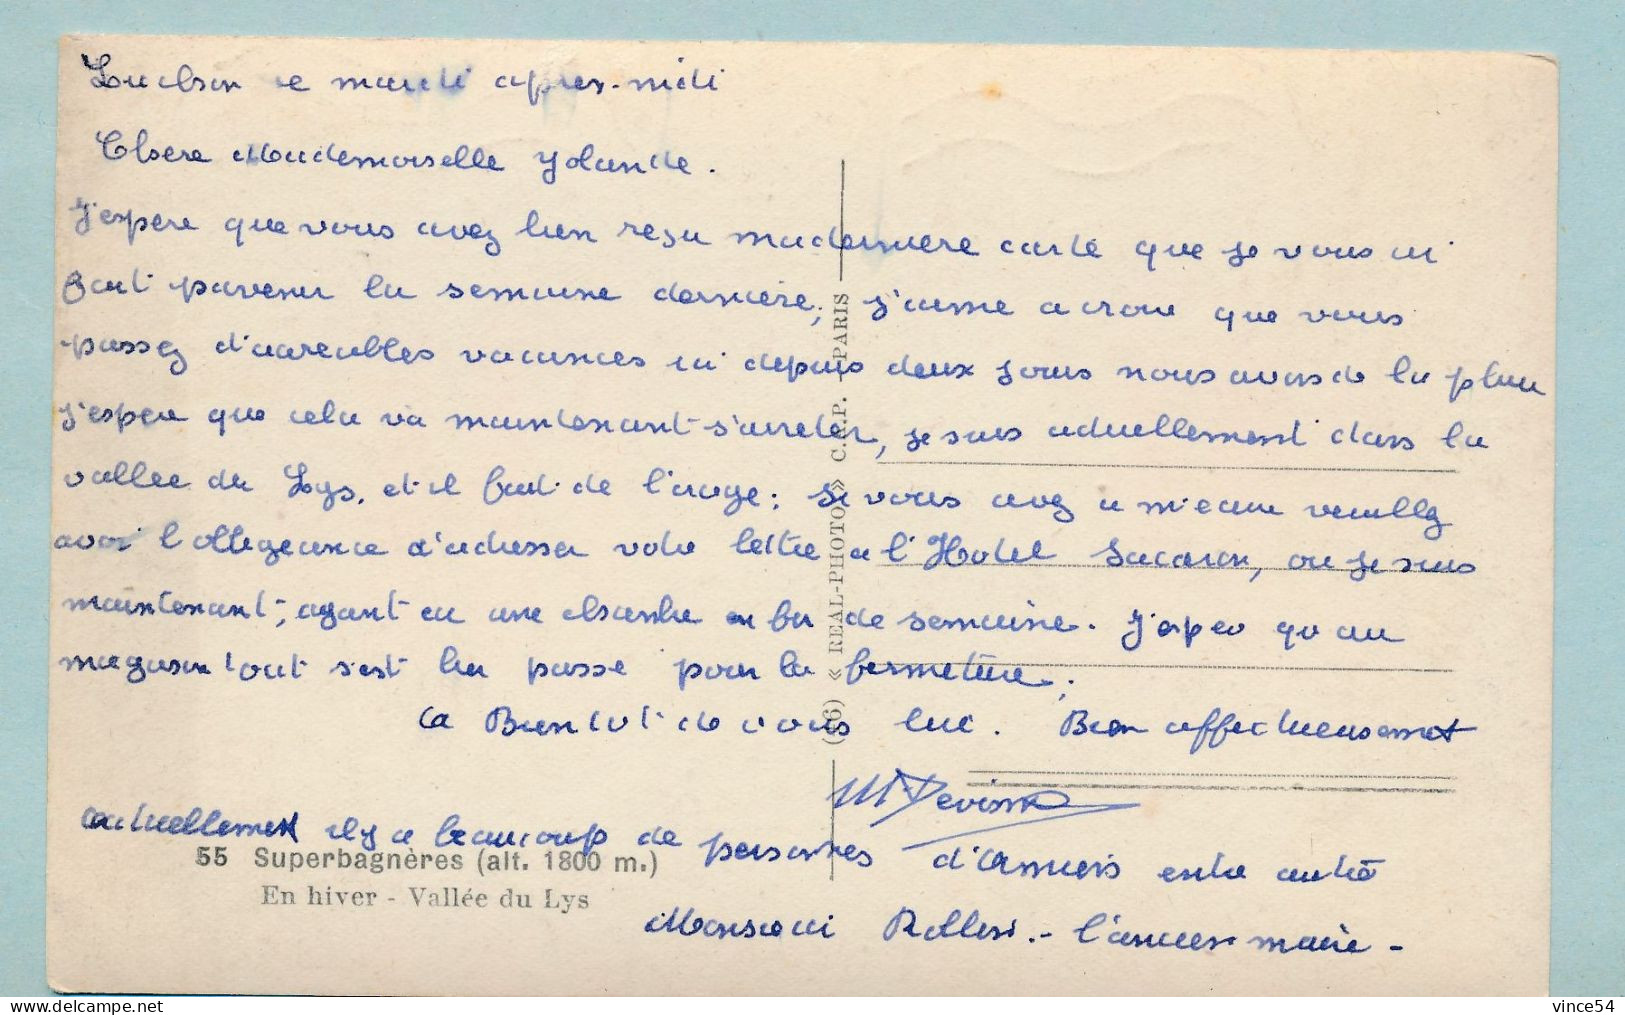 Luchon le mardi après-midi
Chère Mademoiselle Yolande.
J'espère que vous avez bien reçu ma dernière carte que je vous ai
fait parvenir la semaine dernière, j'aime a croire que vous
passez d'agréables vacances ici depuis deux jours nous avons de la pluie
j'espère que cela va maintenant s'arreter, je suis actuellement dans la
vallée du Lys, et il fait de l'orage; si vous avez a m'ecrire veuillez
avoir l'obligeance d'adresser votre lettre a l'Hotel Sacaron, ou je suis
maintenant, ayant eu une chambre en fin de semaine. J'espère qu'au
magasin tout s'est bien passé pour la fermeture.
a Bientot de vous lire. Bien affectueusement
actuellement il y a beaucoup de personnes d'Amiens entre autre
Monsieur - l'ancien maire -
55 Superbagnères (alt. 1800 m.)
En hiver - Vallée du Lys
« REAL-PHOTO » C.A.P. - PARIS
vince54